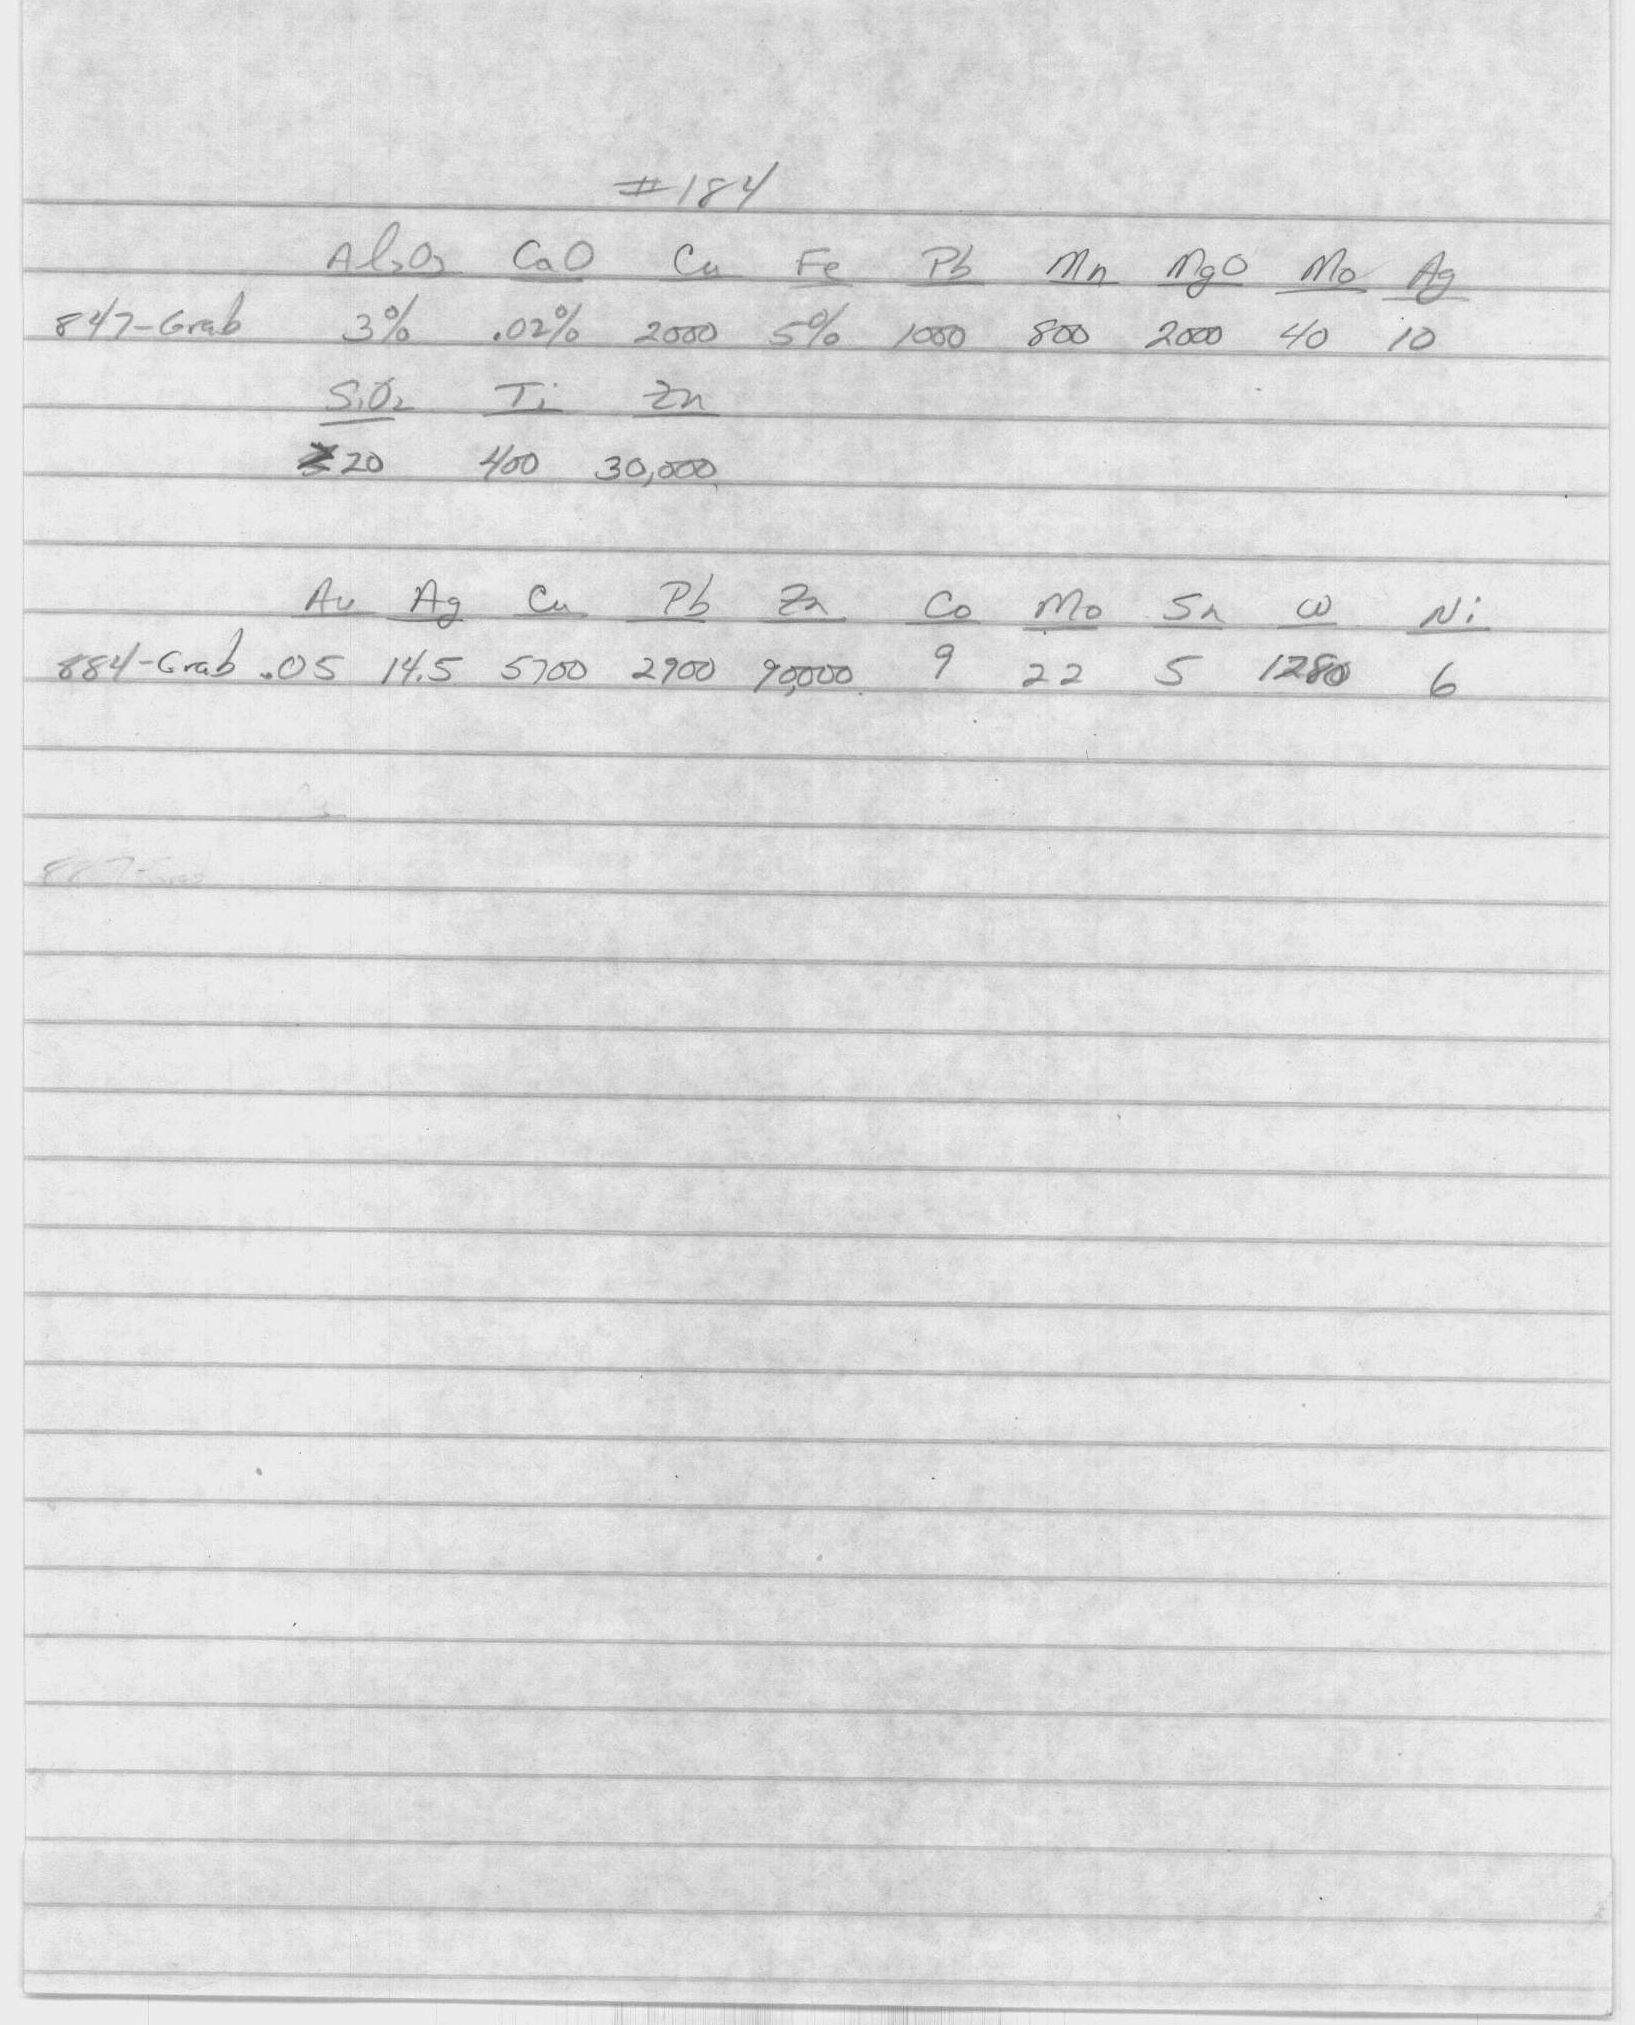 #184
Al2O3 CaO Cu Fe Pb Mn MgO Mo Ag
847-Grab 3% .02% 2000 5% 1000 800 2000 40 10
SiO2 Ti Zn
20 400 30,000
Au Ag Cu Pb Zn Co Mo Sn W Ni
884-Grab .05 14.5 5700 2900 90,000 9 22 5 1280 6